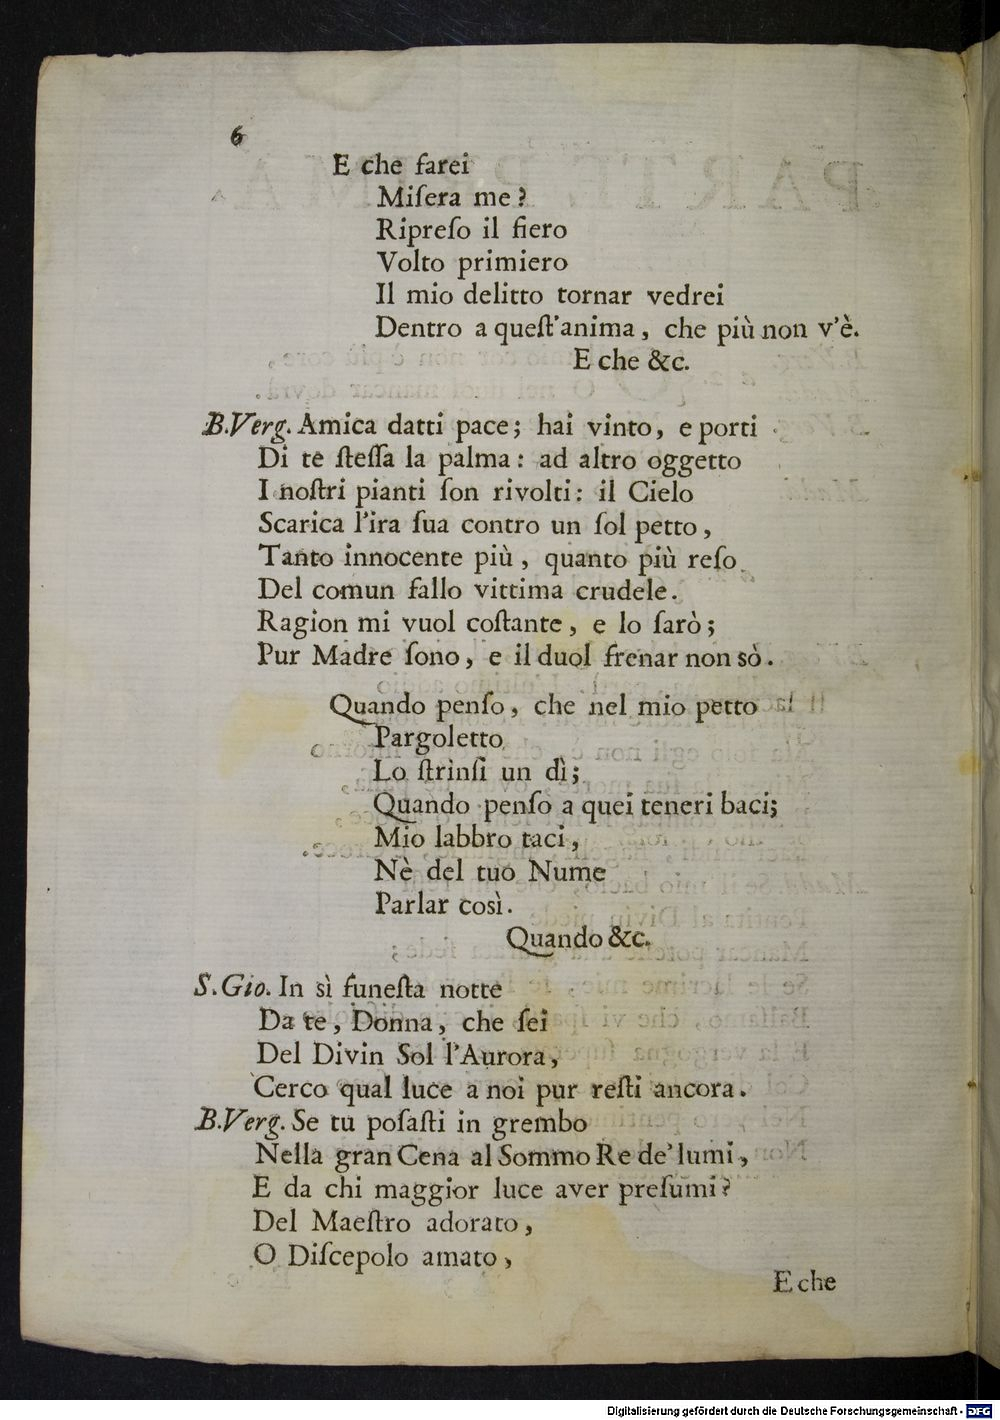 6
E che farei
Miſera me?
Ripreſo il fiero
Volto primiero
Il mio delitto tornar vedrei
Dentro a queſt'anima, che più non v'è.
E che &c.
B.Verg. Amica datti pace; hai vinto, e porti
Di te ſteſſa la palma: ad altro oggetto
I noſtri pianti ſon rivolti: il Cielo
Scarica l'ira ſua contro un ſol petto,
Tanto innocente più, quanto più reſo
Del comun fallo vittima crudele.
Ragion mi vuol coſtante, e lo ſarò;
Pur Madre ſono, e il duol frenar non sò.
Quando penſo, che nel mio petto
Pargoletto
Lo ſtrinſi un dì;
Quando penſo a quei teneri baci;
Mio labbro taci,
Nè del tuo Nume
Parlar così.
Quando &c.
S.Gio. In sì funeſta notte
Da te, Donna, che ſei
Del Divin Sol l'Aurora,
Cerco qual luce a noi pur reſti ancora.
B.Verg. Se tu poſaſti in grembo
Nella gran Cena al Sommo Re de' lumi,
E da chi maggior luce aver preſumi?
Del Maeſtro adorato,
O Diſcepolo amato,
E che
Digitalisierung gefördert durch die Deutsche Forschungsgemeinschaft - DFG